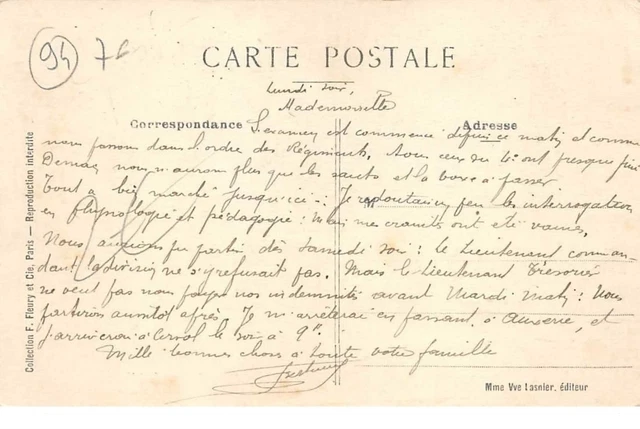 94
7€
CARTE POSTALE
Lundi soir,
Mademoiselle
Correspondance
Adresse
L'examen est commencé depuis ce matin et comme
nous passons dans l'ordre des Régiments, tous ceux du 4e ont presque fini
Demain nous n'aurons plus que les sauts et la boxe à passer
Tout a bien marché jusqu'ici. Je redoutais un peu les interrogations
en Physiologie et pédagogie : mais mes craintes ont été vaines.
Nous aurions pu partir dès samedi soir : le Lieutenant comman-
dant la division ne s'y refusait pas. Mais le Lieutenant Trésorier
ne veut pas nous payer nos indemnités avant Mardi matin : Nous
partirons aussitôt après. Je m'arrêterai en passant à Auxerre, et
j'arriverai à le soir à 9h.
Mille bonnes choses à toute votre famille
Collection F. Fleury et Cie, Paris — Reproduction interdite
Mme Vve Lasnier, éditeur